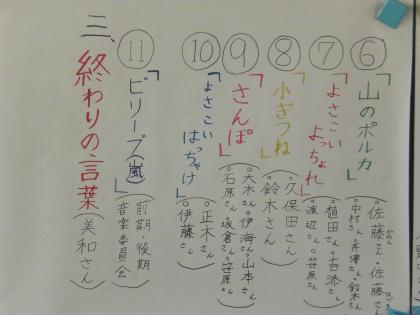 ⑥「山のポルカ」
佐藤さん・佐藤さん
中村さん・芹澤さん・鈴木さん
⑦「よさこい よっちょれ」
植田さん・古添さん
渡辺さん・笹原さん
⑧「小ぎつね」
久保田さん
鈴木さん
⑨「さんぽ」
大木さん・伊海さん・山本さん
石原さん・坂倉さん・笹原さん
⑩「よさこい はっちゃけ」
正木さん
伊藤さん
⑪「ビリーブ(嵐)」
(前期・後期
音楽委員会)
三、終わりの言葉
(美和さん)